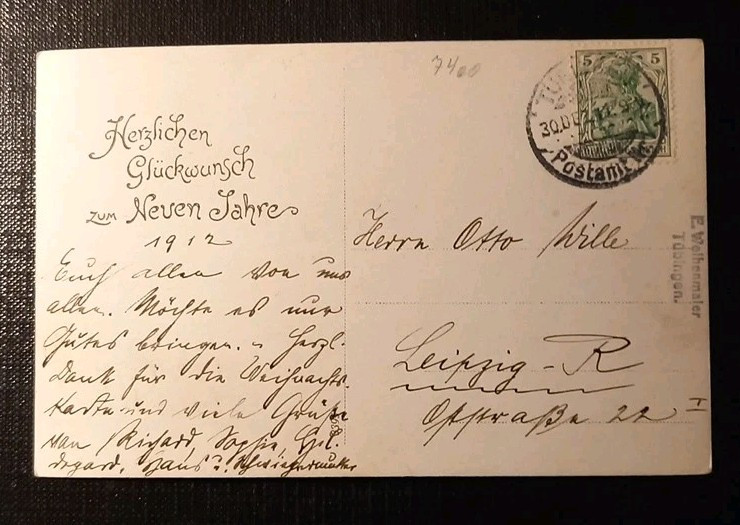 7400
5 5
TÜ
30.DE
Postamt
Herzlichen
Glückwunsch
zum Neuen Jahre
1912
Euch allen von uns
allen. Möchte es nur
Gutes bringen. Herzl.
Dank für die Weihnachts-
karte und viele Grüße
von Richard, Sophie, Hil-
degard, Hans u. Schwiegermutter
Herrn Otto Wille
Leipzig-R
Oststraße 22 I
E. Weihenmaier
Tübingen.